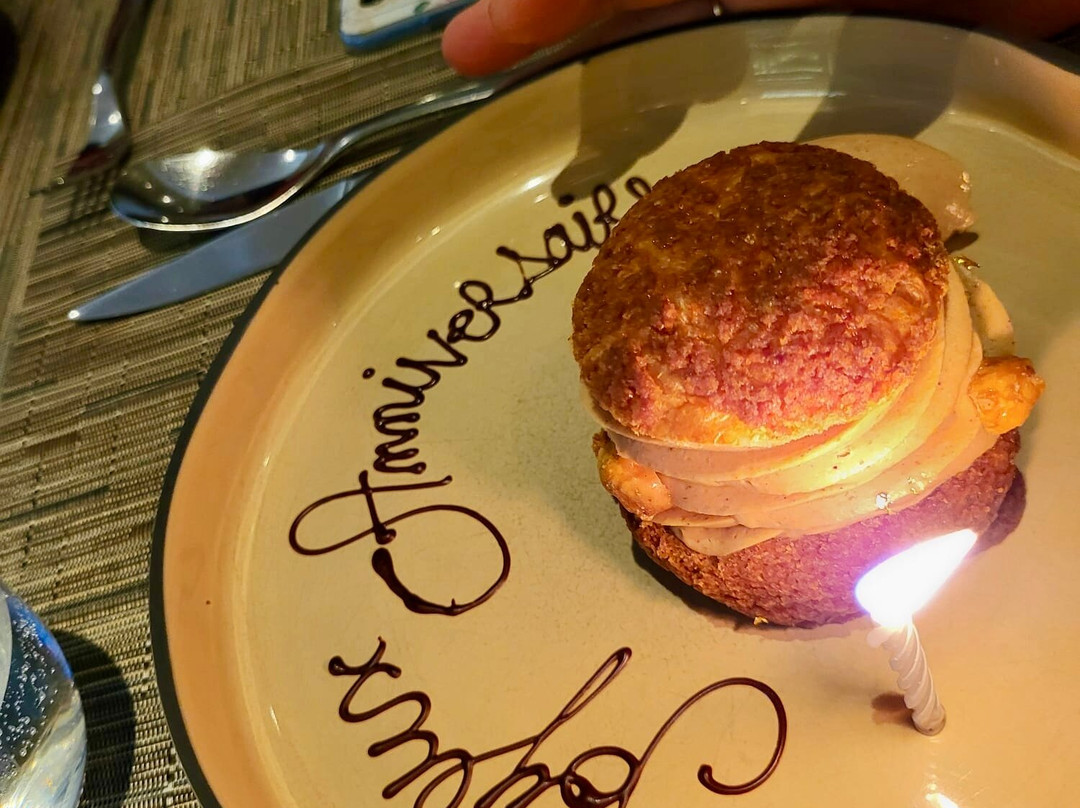 Joyeux Anniversaire